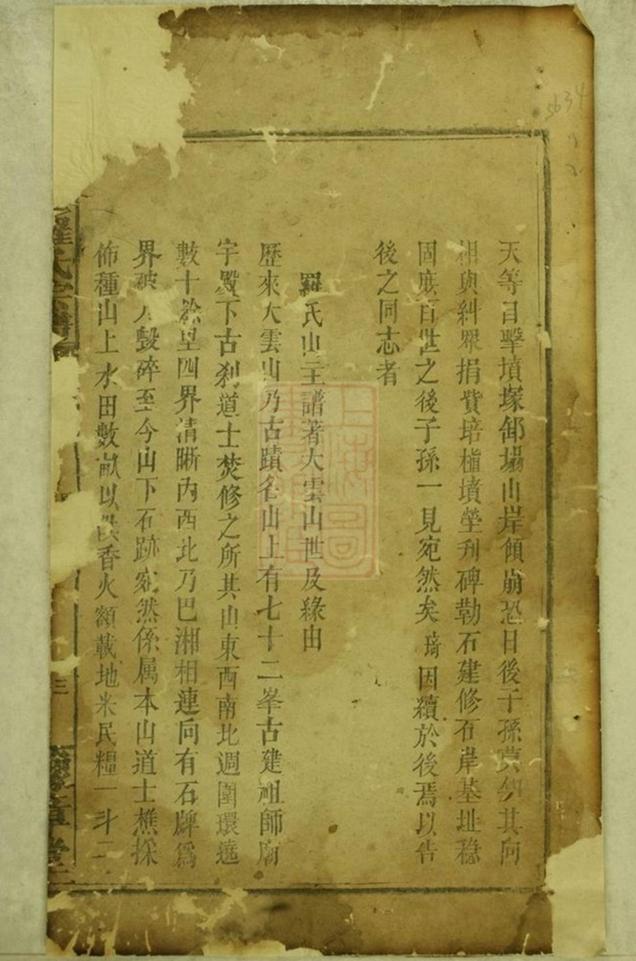 天等目擊墳塚卸塌山岸傾崩恐日後子孫莫知其向
相與糾眾捐貲培植墳塋刋碑勒石建修石岸基址穩
固庶百世之後子孫一見宛然矣 因續於後焉以告
後之同志者
羅氏山主譜著大雲山世及綠由
歷來大雲山乃古蹟名山上有七十二峯古建祖師廟
宇殿下古刹道士焚修之所其山東西南北週圍環遶
數十餘里四界清晰內西北乃巴湘相連向有石牌爲
界被人毀碎至今山下石跡宛然係属本山道士樵採
佈種山上水田數畝以供香火額載地米民糧一斗二
羅氏宗譜
三
豫章堂
5634